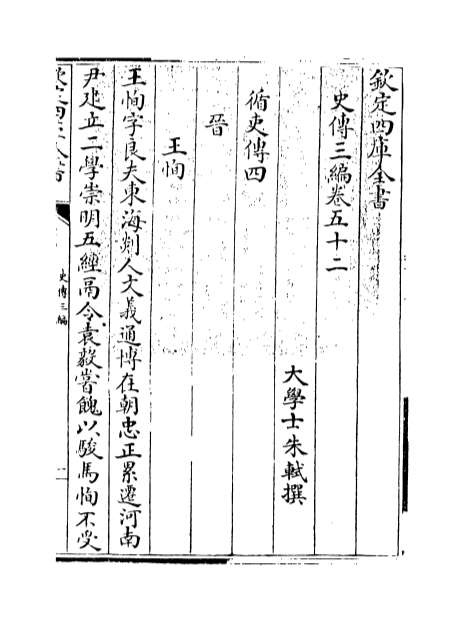 欽定四庫全書
史傳三編卷五十二
大學士朱軾撰
循吏傳四
晉
王恂
王恂字良夫東海剡人文義通博在朝忠正累遷河南
尹建立二學崇明五經鬲令袁毅嘗餽以駿馬恂不受
史傳三編
一